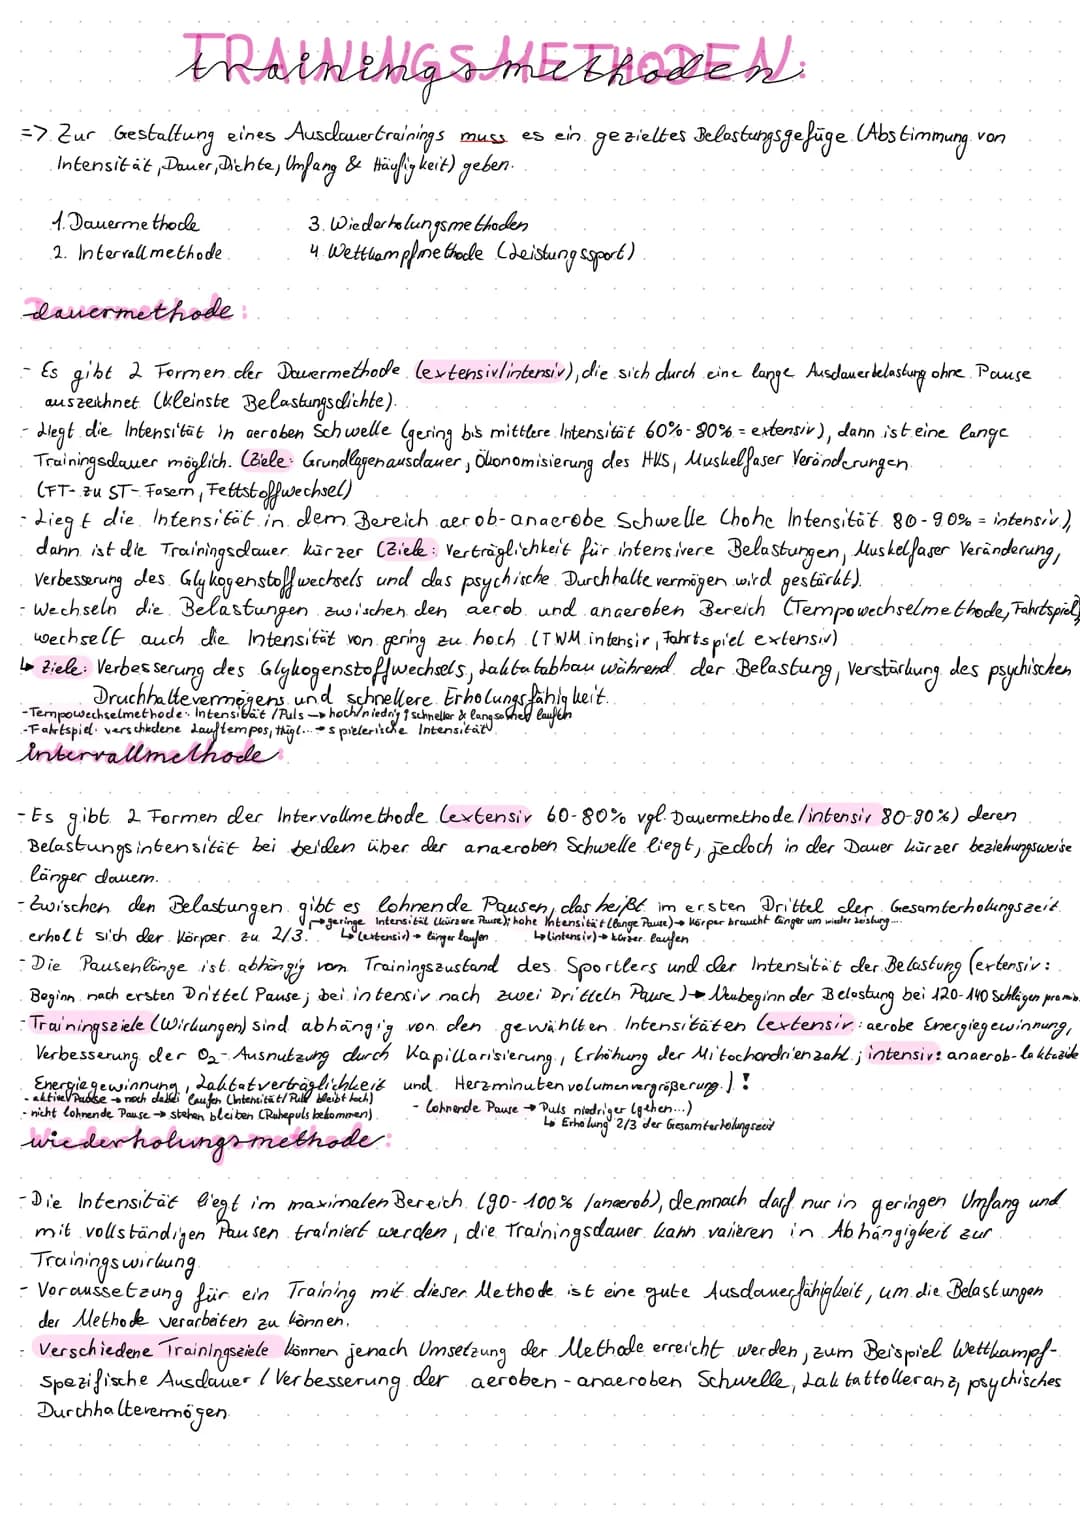 TRAININGSMETHODEN:
trainingsmethoden:
=> Zur Gestaltung eines Ausdauertrainings muss es ein gezieltes Belastungsgefüge (Abstimmung von
Intensität, Dauer, Dichte, Umfang & Häufigkeit) geben.
1. Dauermethode
2. Intervallmethode
3. Wiederholungsmethoden
4. Wettkampfmethode (Leistungssport)
dauermethode:
- Es gibt 2 Formen der Dauermethode (extensiv/intensiv), die sich durch eine lange Ausdauerbelastung ohne Pause
auszeichnet (kleinste Belastungsdichte).
- Liegt die Intensität in aeroben Schwelle (gering bis mittlere Intensität 60%-80% = extensiv), dann ist eine lange
Trainingsdauer möglich. (Ziele: Grundlagenausdauer, Ökonomisierung des HKS, Muskelfaser Veränderungen
(FT- zu ST-Fasern, Fettstoffwechsel)
- Liegt die Intensität in dem Bereich aerob-anaerobe Schwelle (hohe Intensität 80-90% = intensiv),
dann ist die Trainingsdauer kürzer (Ziele: Verträglichkeit für intensivere Belastungen, Muskelfaser Veränderung,
Verbesserung des Glykogenstoffwechsels und das psychische Durchhaltevermögen wird gestärkt).
- Wechseln die Belastungen zwischen den aerob und anaeroben Bereich (Tempowechselmethode, Fahrtspiel)
wechselt auch die Intensität von gering zu hoch (TWM intensiv, Fahrtspiel extensiv)
↳ Ziele: Verbesserung des Glykogenstoffwechsels, Laktatabbau während der Belastung, Verstärkung des psychischen
Druchhaltevermögens und schnellere Erholungsfähigkeit.
- Tempowechselmethode: Intensität/Puls → hoch/niedrig; schneller & langsamer laufen
- Fahrtspiel: verschiedene Lauftempos, Hügel... → spielerische Intensität
intervallmethode:
- Es gibt 2 Formen der Intervallmethode (extensiv 60-80% vgl. Dauermethode/intensiv 80-90%) deren
Belastungsintensität bei beiden über der anaeroben Schwelle liegt, jedoch in der Dauer kürzer beziehungsweise
länger dauern.
- Zwischen den Belastungen gibt es lohnende Pausen, das heißt im ersten Drittel der Gesamterholungszeit
erholt sich der Körper zu 2/3. → geringe Intensität (kürzere Pause); hohe Intensität (lange Pause) → Körper braucht länger um wieder Leistung...
↳ (extensiv) → länger laufen ↳ (intensiv) → kürzer laufen
- Die Pausenlänge ist abhängig vom Trainingszustand des Sportlers und der Intensität der Belastung (extensiv:
Beginn nach ersten Drittel Pause; bei intensiv nach zwei Dritteln Pause) → Neubeginn der Belastung bei 120-140 Schlägen pro min.
- Trainingsziele (Wirkungen) sind abhängig von den gewählten Intensitäten (extensiv: aerobe Energiegewinnung,
Verbesserung der O₂-Ausnutzung durch Kapillarisierung, Erhöhung der Mitochondrienzahl; intensiv: anaerob-laktazide
Energiegewinnung, Laktatverträglichkeit und Herzminutenvolumenvergrößerung.)!
- aktive Pause → noch dabei laufen (Intensität/Puls bleibt hoch)
- nicht lohnende Pause → stehen bleiben (Ruhepuls bekommen)
- lohnende Pause → Puls niedriger (gehen...)
↳ Erholung 2/3 der Gesamterholungszeit
wiederholungsmethode:
- Die Intensität liegt im maximalen Bereich (90-100% /anaerob), demnach darf nur in geringen Umfang und
mit vollständigen Pausen trainiert werden, die Trainingsdauer kann variieren in Abhängigkeit zur
Trainingswirkung
- Voraussetzung für ein Training mit dieser Methode ist eine gute Ausdauerfähigkeit, um die Belastungen
der Methode verarbeiten zu können.
- Verschiedene Trainingsziele können jenach Umsetzung der Methode erreicht werden, zum Beispiel Wettkampf-
spezifische Ausdauer / Verbesserung der aeroben-anaeroben Schwelle, Laktattolleranz, psychisches
Durchhaltevermögen.